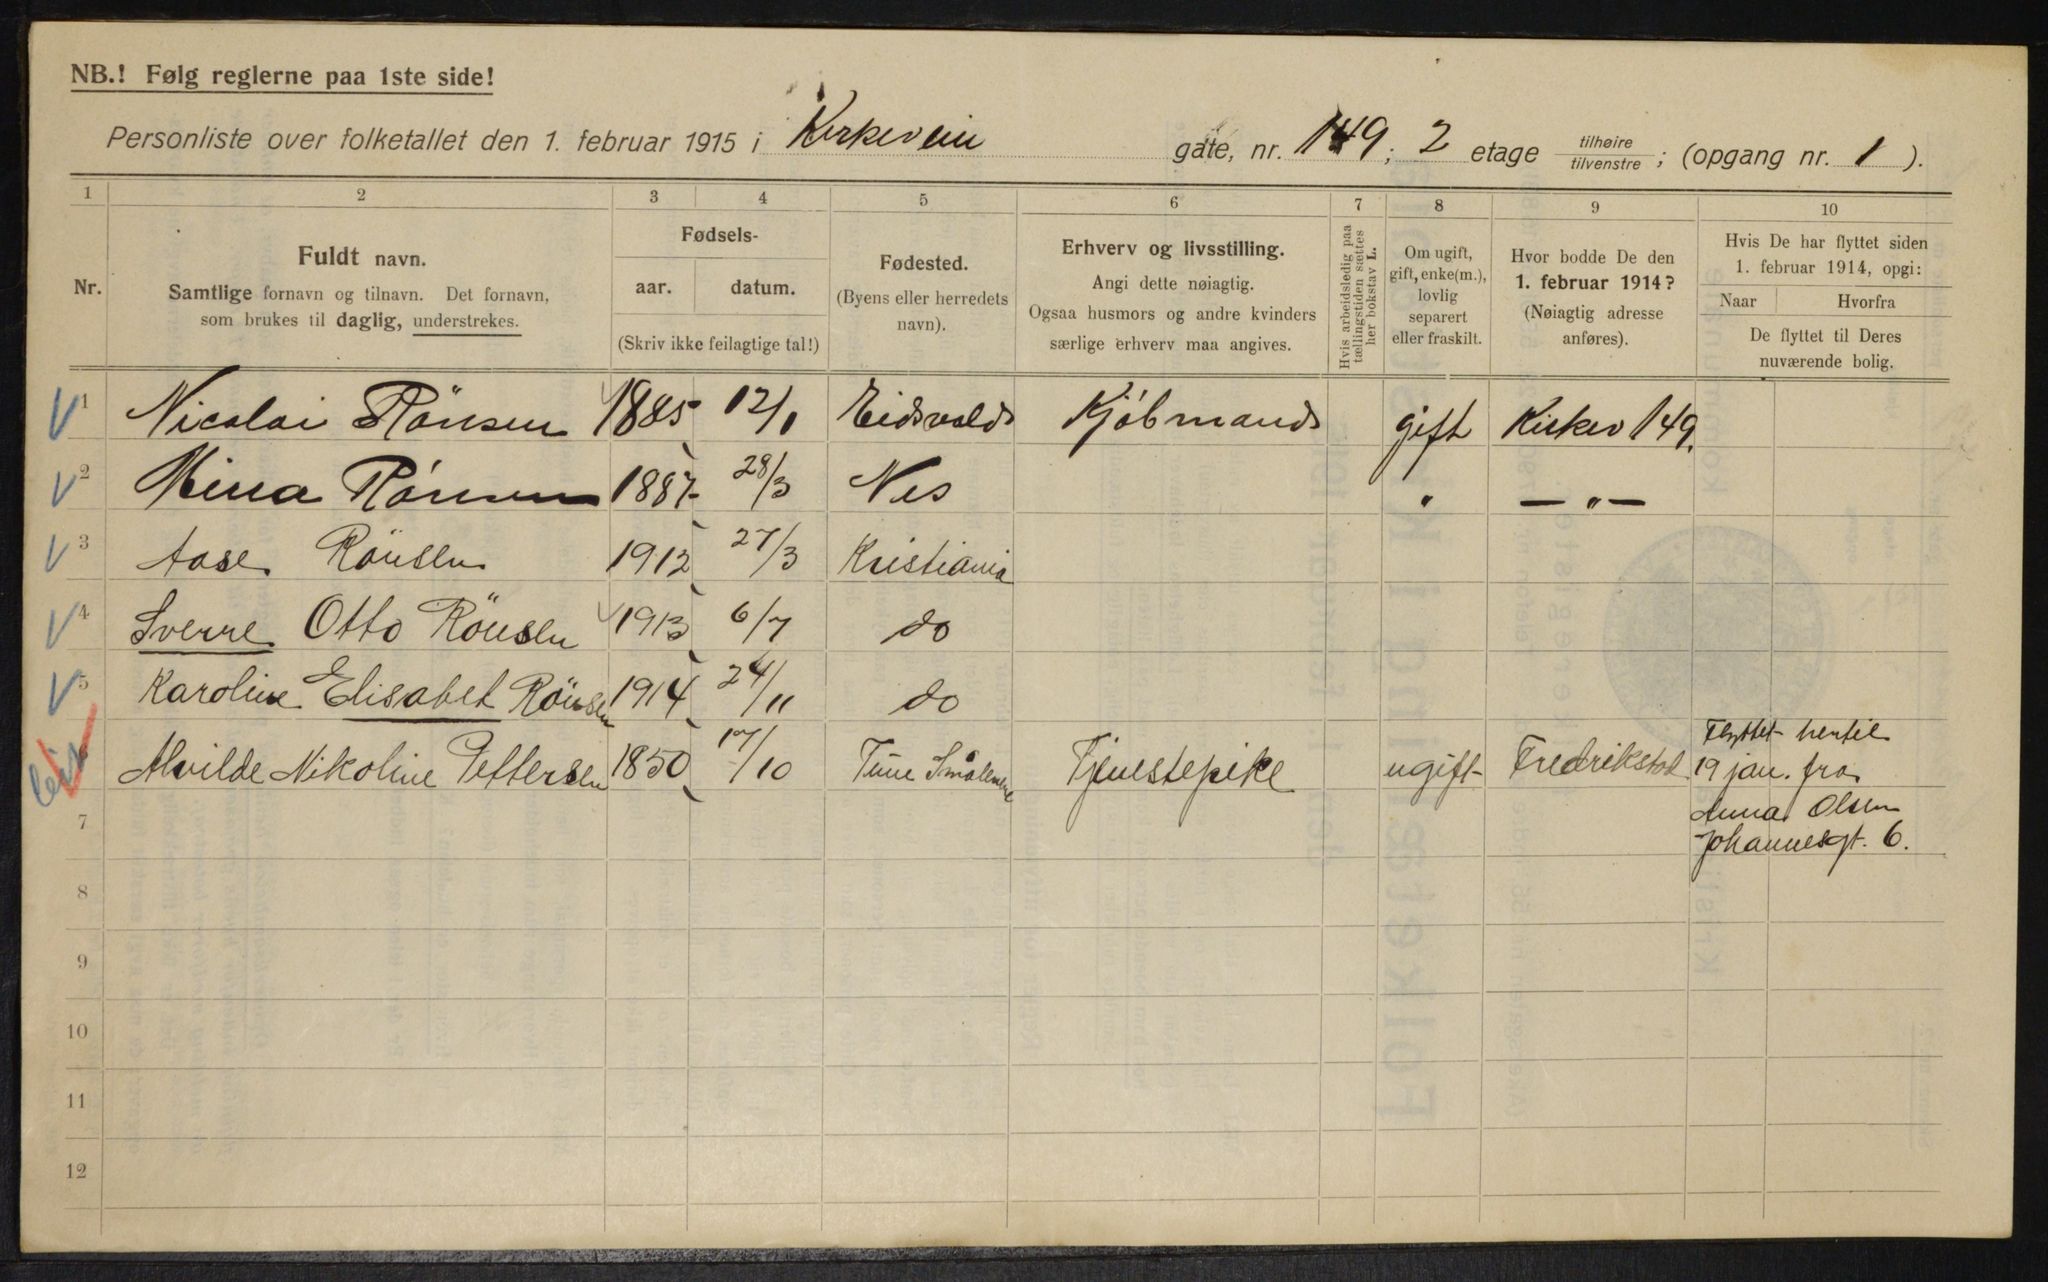 NB.! Følg reglerne paa 1ste side!
Personliste over folketallet den 1. februar 1915 i Kirkeveien gate, nr. 149; 2 etage tilhøire tilvenstre; (opgang nr. 1).
1 2 3 4 5 6 7 8 9 10
Nr.
Fuldt navn.
Samtlige fornavn og tilnavn. Det fornavn,
som brukes til daglig, understrekes.
Fødsels-
aar. datum.
(Skriv ikke feilagtige tal!)
Fødested.
(Byens eller herredets
navn).
Erhverv og livsstilling.
Angi dette nøiagtig.
Ogsaa husmors og andre kvinders
særlige erhverv maa angives.
Hvis arbeidsledig paa
tællingstiden sættes
her bokstav L.
Om ugift,
gift, enke(m.),
lovlig
separert
eller fraskilt.
Hvor bodde De den
1. februar 1914?
(Nøiagtig adresse
anføres).
Hvis De har flyttet siden
1. februar 1914, opgi:
Naar Hvorfra
De flyttet til Deres
nuværende bolig.
V 1 Nicolai Rönsen 1885 12/1 Eidsvold Kjöbmand gift Kirkev 149.
V 2 Mina Rónsen 1887 28/3 Nes " — " —
V 3 Aase Rönsen 1912 27/3 Kristiania
V 4 Sverre Otto Rönsen 1913 6/7 do
V 5 Karoline Elisabet Rönsen 1914 24/11 do
6 Alvilde Nikoline Pettersen 1850 17/10 Tune Smålenene Tjenestepike ugift Fredrikstad Flyttet hertil
19 jan. fra
Anna Olsen
Johannesgt. 6.
7
8
9
10
11
12